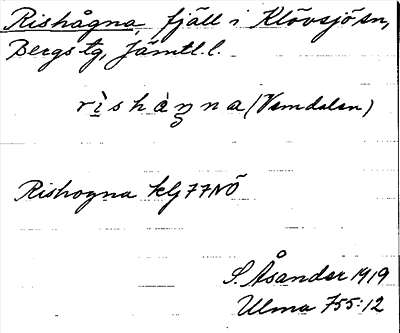 Rishågna, fjäll i Klövsjö sn,
Bergs tg, Jämtl. l.
rìshàŋna (Vemdalen)
Rishogna klj 77NÖ
S. Åsander 1919
Ulma 755:12